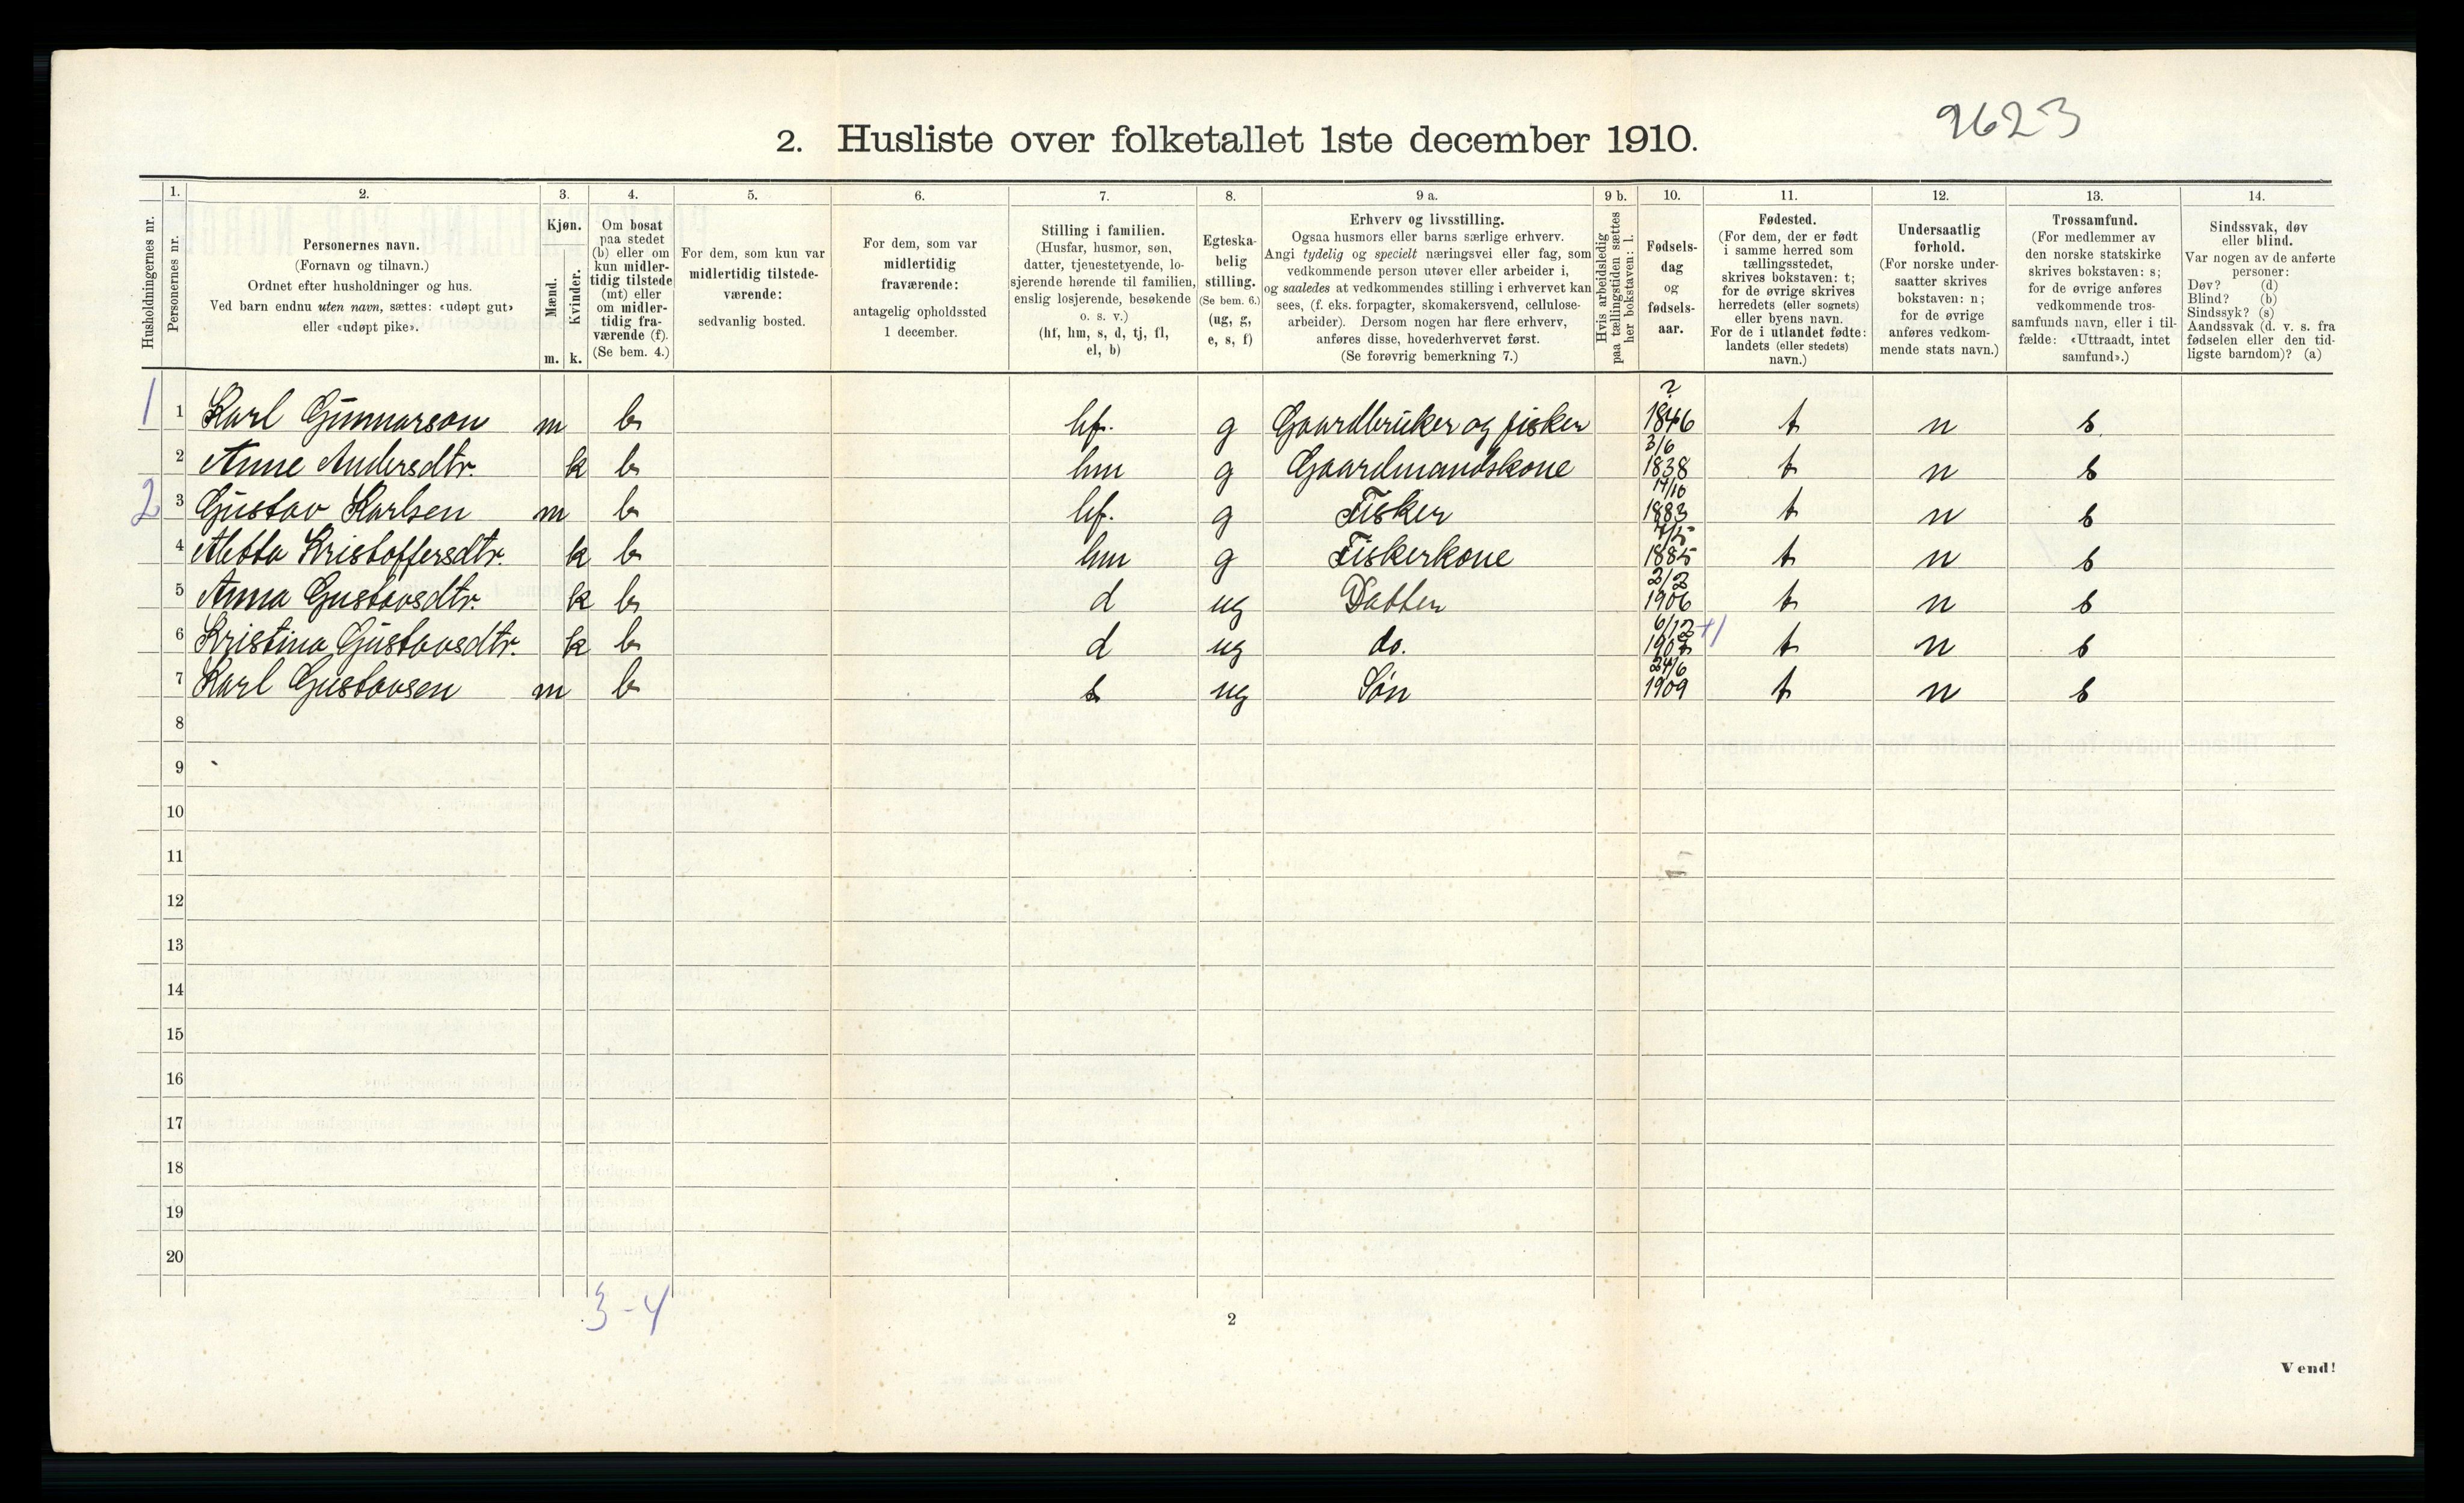 9623
2. Husliste over folketallet 1ste december 1910.
Husholdningernes nr.
1.
Personernes nr.
2.
Personernes navn.
(Fornavn og tilnavn.)
Ordnet efter husholdninger og hus.
Ved barn endnu uten navn, sættes: «udøpt gut»
eller «udøpt pike».
3.
Kjøn.
Mænd.
Kvinder.
m. k.
4.
Om bosat
paa stedet
(b) eller om
kun midler-
tidig tilstede
(mt) eller
om midler-
tidig fra-
værende (f).
(Se bem. 4.)
5.
For dem, som kun var
midlertidig tilstede-
værende:
sedvanlig bosted.
6.
For dem, som var
midlertidig
fraværende:
antagelig opholdssted
1 december.
7.
Stilling i familien.
(Husfar, husmor, søn,
datter, tjenestetyende, lo-
sjerende hørende til familien,
enslig losjerende, besøkende
o. s. v.)
(hf, hm, s, d, tj, fl,
el, b)
8.
Egteska-
belig
stilling.
(Se bem. 6.)
(ug, g,
e, s, f)
9 a.
Erhverv og livsstilling.
Ogsaa husmors eller barns særlige erhverv.
Angi tydelig og specielt næringsvei eller fag, som
vedkommende person utøver eller arbeider i,
og saaledes at vedkommendes stilling i erhvervet kan
sees, (f. eks. forpagter, skomakersvend, cellulose-
arbeider). Dersom nogen har flere erhverv,
anføres disse, hovederhvervet først.
(Se forøvrig bemerkning 7.)
9 b.
Hvis arbeidsledig
paa tællingstiden sættes
her bokstaven: l.
10.
Fødsels-
dag
og
fødsels-
aar.
11.
Fødested.
(For dem, der er født
i samme herred som
tællingsstedet,
skrives bokstaven: t;
for de øvrige skrives
herredets (eller sognets)
eller byens navn.
For de i utlandet fødte:
landets (eller stedets)
navn.)
12.
Undersaatlig
forhold.
(For norske under-
saatter skrives
bokstaven: n;
for de øvrige
anføres vedkom-
mende stats navn.)
13.
Trossamfund.
(For medlemmer av
den norske statskirke
skrives bokstaven: s;
for de øvrige anføres
vedkommende tros-
samfunds navn, eller i til-
fælde: «Uttraadt, intet
samfund».)
14.
Sindssvak, døv
eller blind.
Var nogen av de anførte
personer:
Døv? (d)
Blind? (b)
Sindssyk? (s)
Aandssvak (d. v. s. fra
fødselen eller den tid-
ligste barndom)? (a)
1 1 Karl Gunnarson m b hf. g Gaardbruker og fisker ? 1846 t n s.
2 Anne Andersdtr. k b hm g Gaardmandskone 3/6 1838 t n s
2 3 Gustav Karlsen m b hf. g Fisker 17/10 1883 t n s
4 Aletta Kristoffersdtr. k b hm g Fiskerkone 7/5 1885 t n s
5 Anna Gustavsdtr. k b d ug Datter 2/2 1906 t n s
6 Kristina Gustavsdtr. k b d ug do. 6/12 1907 +1 t n s
7 Karl Gustavsen m b s ug Søn 24/6 1909 t n s
8
9
10
11
12
13
14
15
16
17
18
19
20
3-4
2
Vend!